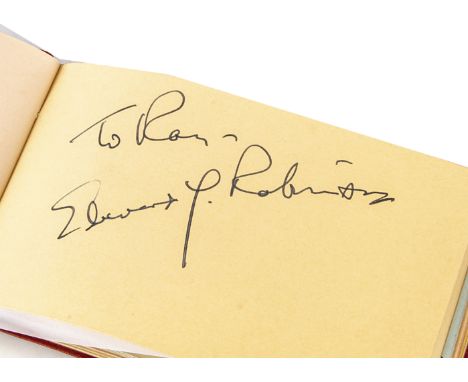 To Ron -
Edward G. Robinson